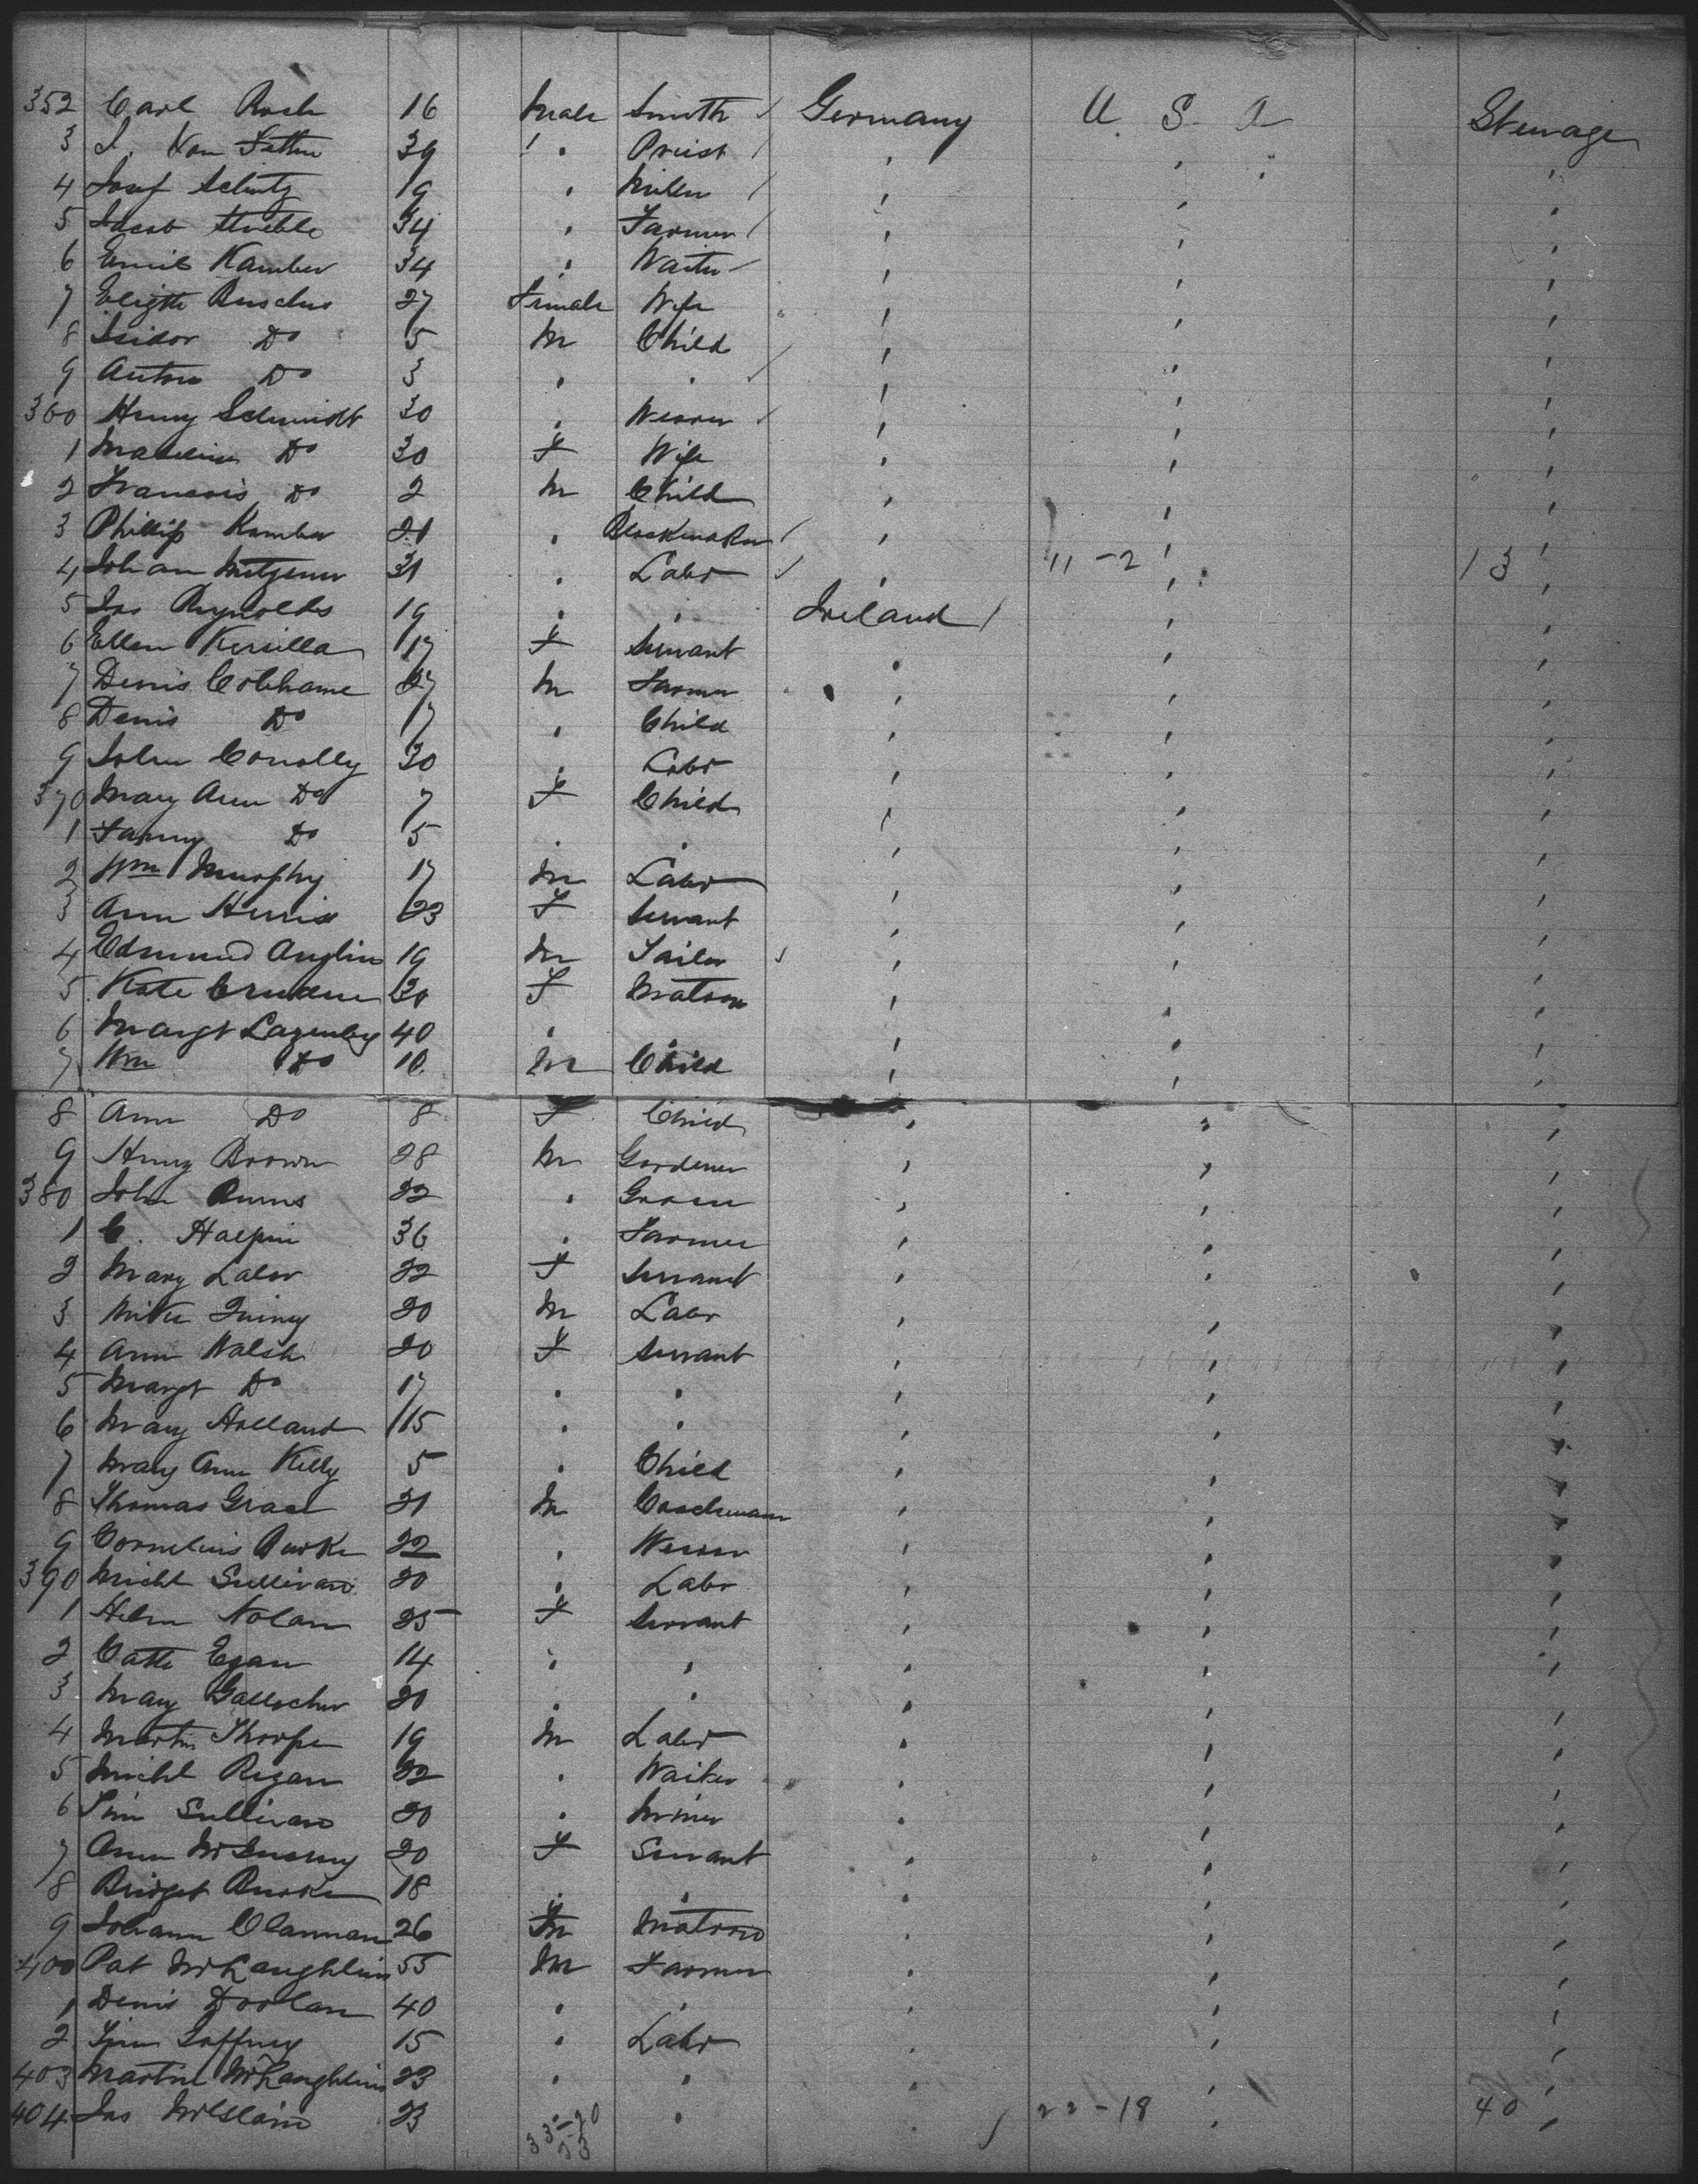 352 Carl Rosh 16 Male Smith Germany U. S. A Steerage
3 J. Von 39 " Priest " " "
4 Josef Schutz 19 " Miller " " "
5 Jacob Struble 34 " Farmer " " "
6 Emil Kamber 34 " Waiter " " "
7 Ruschus 27 Female Wife " " "
8 Isidor Do 5 M Child " " "
9 Anton Do 3 " " " " "
360 Henry Schmidt 30 " Weaver " " "
1 Madeline Do 30 F Wife " " "
2 Francois Do 2 M Child " " "
3 Phillip Kamber 21 " Clockmaker " " "
4 Johan Mitzener 31 " Labr " 11-2 " 13 "
5 Jas Reynolds 19 " " Ireland " "
6 Ellen Kersilla 17 F Servant " " "
7 Denis Colehame 27 M Farmer " " "
8 Denis Do 7 " Child " " "
9 John Conolly 30 " Labr " " "
370 Mary Ann Do 7 F Child " " "
1 Fanny Do 5 " " " " "
2 Wm Murphy 17 M Labr " " "
3 Ann Harris 23 F Servant " " "
4 Edmund Anglin 19 M Tailor " " "
5 Kate 30 F Matron " " "
6 Margt Lazenby 40 " " " " "
7 Wm Do 10 M Child " " "
8 Ann Do 8 F Child " " "
9 Henry Brown 28 M Gardener " " "
380 John Burns 22 " Grocer " " "
1 C. Halpin 36 " Farmer " " "
2 Mary Lalor 22 F Servant " " "
3 Mike 20 M Labr " " "
4 Ann Walsh 20 F Servant " " "
5 Margt Do 17 " " " " "
6 Mary Holland 15 " " " " "
7 Mary Ann Kelly 5 " Child " " "
8 Thomas Grace 21 M Coachman " " "
9 Cornelius Burke 22 " Weaver " " "
390 Michl Sullivan 20 " Labr " " "
1 Helen Nolan 25 F Servant " " "
2 Cath Egan 14 " " " " "
3 Mary Gallocher 20 " " " " "
4 Martin Thorpe 19 M Labr " " "
5 Michl Regan 22 " Waiter " " "
6 Tim Sullivan 20 " Miner " " "
7 Ann McInerny 20 F Servant " " "
8 Bridget Burke 18 " " " " "
9 Johann Clannan 26 F Matron " " "
400 Pat McLaughlin 55 M Farmer " " "
1 Denis Doolan 40 " " " " "
2 Tim Gaffney 15 " Labr " " "
403 Martin McLaughlin 23 " " " " "
404 Jas 23 " " " 22-18 " 40 "
33-20